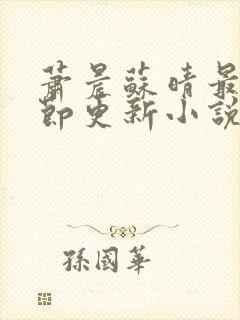 蕭晨蘇晴最
節更新小說
孫國華